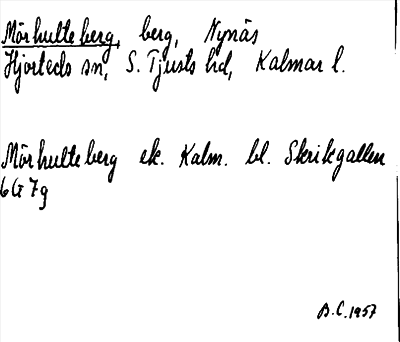 Mörhulteberg, berg, Nynäs
Hjorteds sn, S. Tjusts hd, Kalmar l.
Mörhulteberg ek. Kalm. bl. Skrikgallen
6G7g
B.C. 1957